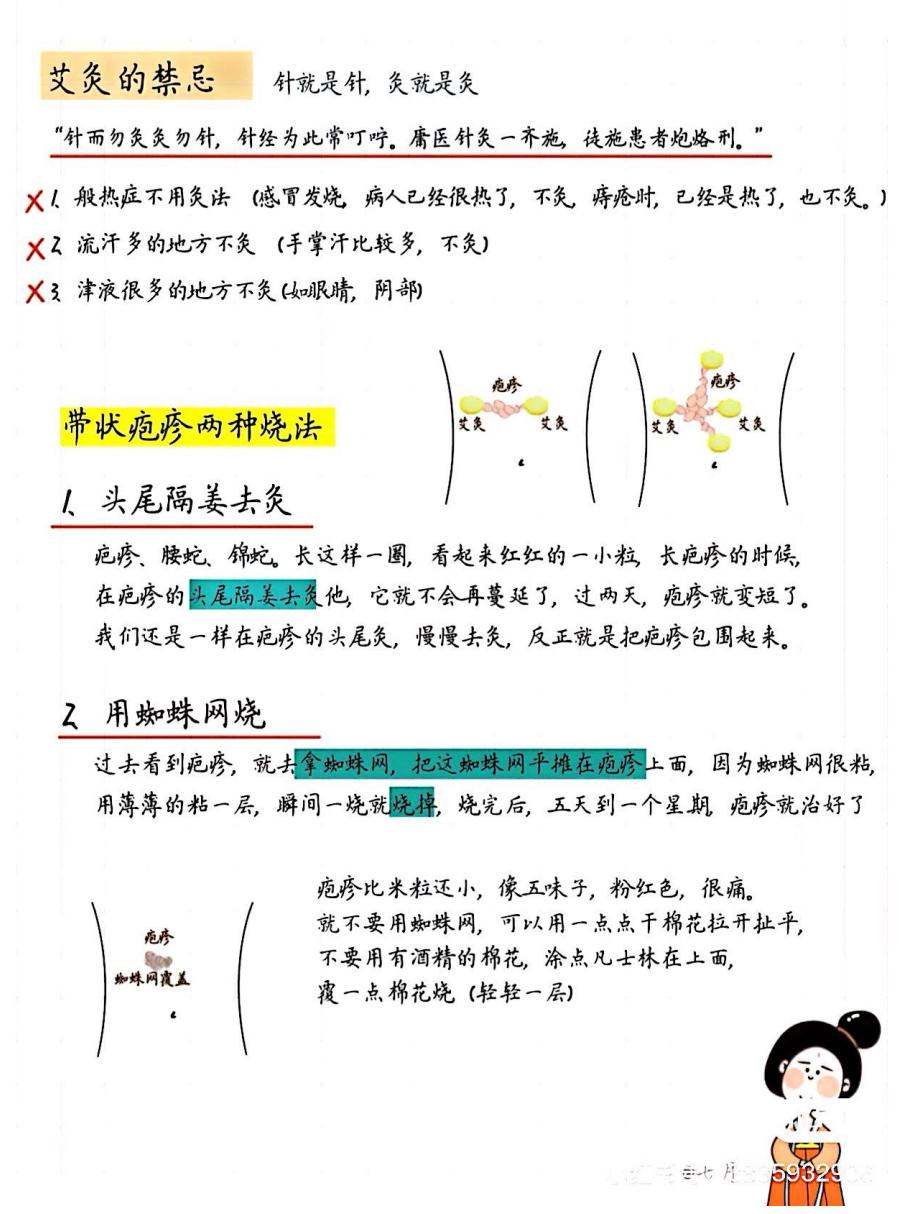 艾灸的禁忌 针就是针，灸就是灸
“针而勿灸灸勿针，针经为此常叮咛。庸医针灸一齐施，徒施患者炮烙刑。”
1、般热症不用灸法 (感冒发烧，病人已经很热了，不灸，痔疮时，已经是热了，也不灸。)
2、流汗多的地方不灸 (手掌汗比较多，不灸)
3、津液很多的地方不灸(如眼睛，阴部)
疱疹
艾灸 艾灸
疱疹
艾灸 艾灸
带状疱疹两种烧法
1、头尾隔姜去灸
疱疹、腰蛇、锦蛇。长这样一圈，看起来红红的一小粒，长疱疹的时候，
在疱疹的头尾隔姜去灸他，它就不会再蔓延了，过两天，疱疹就变短了。
我们还是一样在疱疹的头尾灸，慢慢去灸，反正就是把疱疹包围起来。
2、用蜘蛛网烧
过去看到疱疹，就去拿蜘蛛网，把这蜘蛛网平摊在疱疹上面，因为蜘蛛网很粘，
用薄薄的粘一层，瞬间一烧就烧掉，烧完后，五天到一个星期，疱疹就治好了
疱疹比米粒还小，像五味子，粉红色，很痛。
就不要用蜘蛛网，可以用一点点干棉花拉开扯平，
不要用有酒精的棉花，涂点凡士林在上面，
覆一点棉花烧（轻轻一层）
疱疹
蜘蛛网覆盖
七月